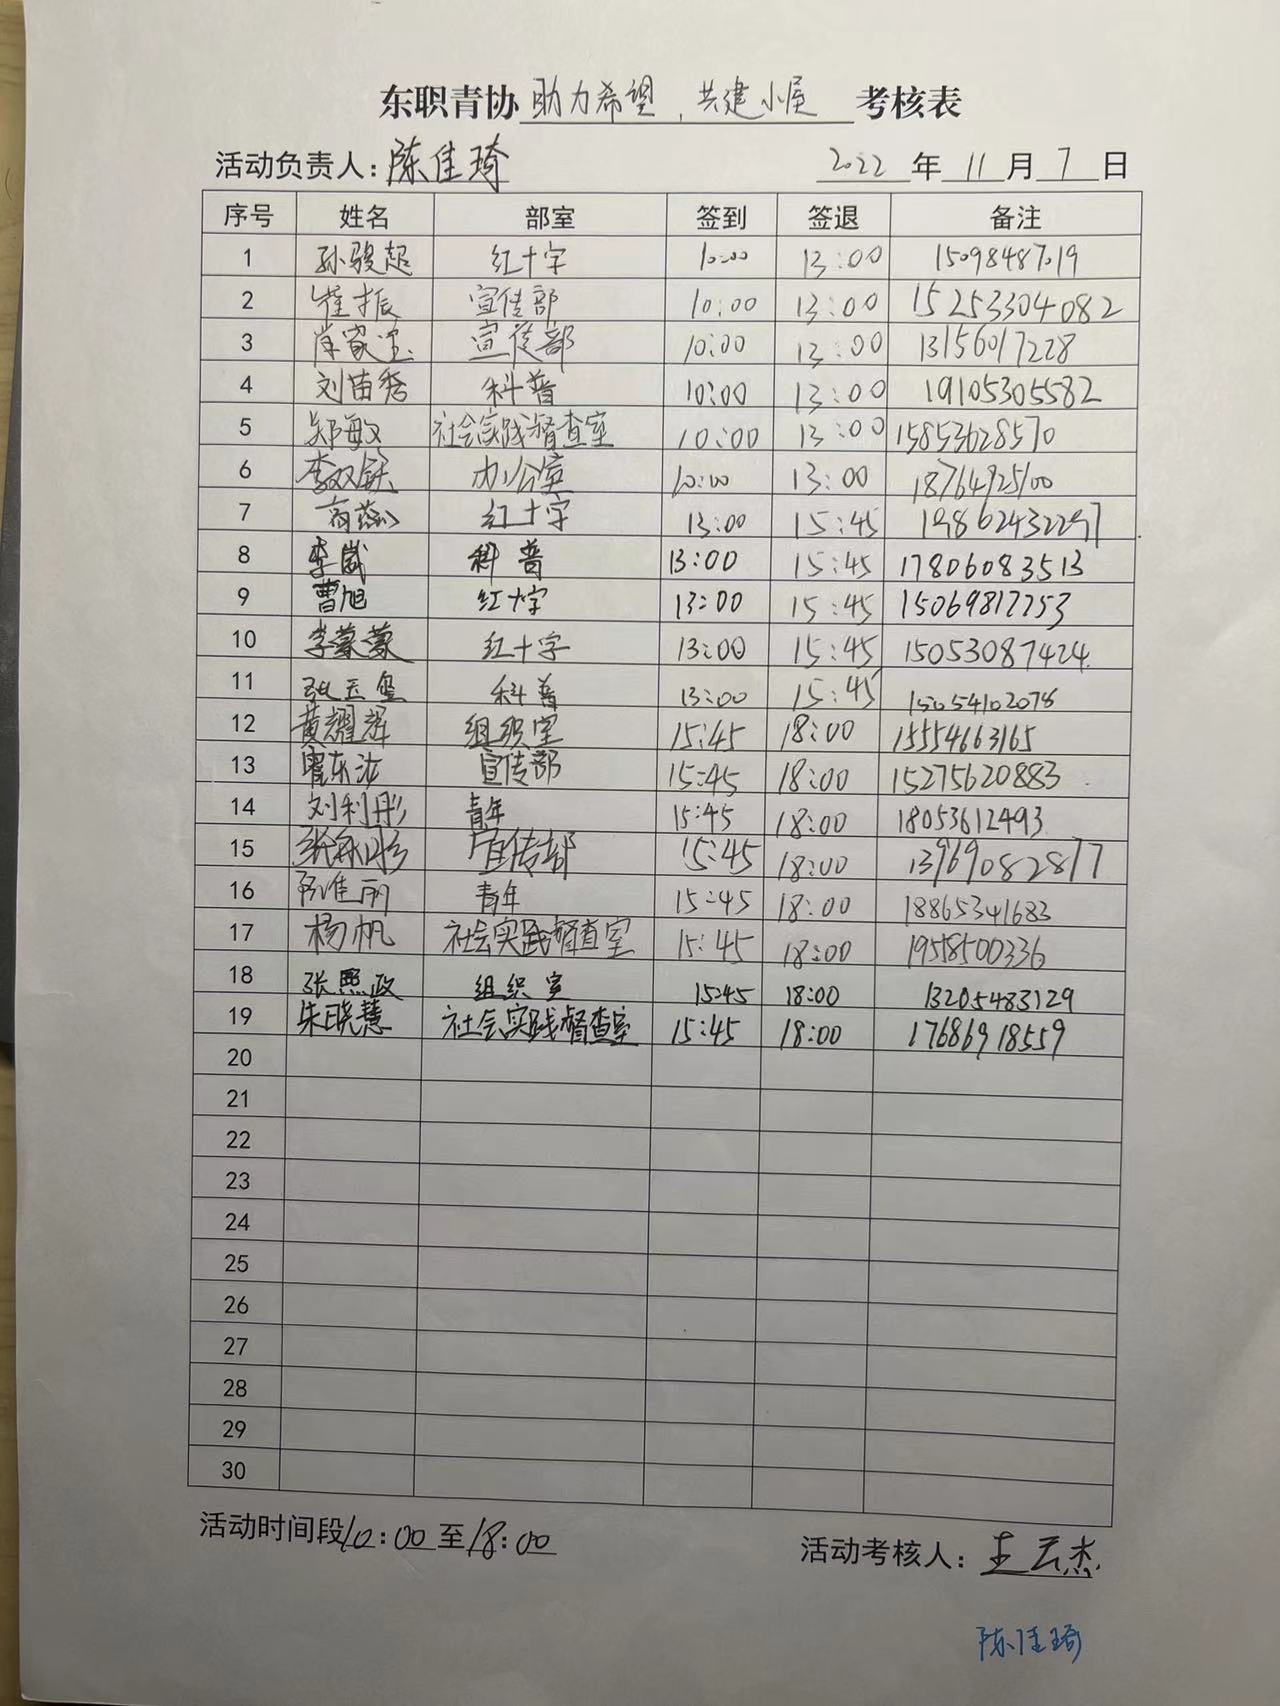 东职青协助力希望，共建小屋考核表
活动负责人：陈佳琦 2022年11月7日
序号 姓名 部室 签到 签退 备注
1 孙骏超 红十字 10:00 13:00 15098487019
2 崔振 宣传部 10:00 13:00 15253304082
3 肖家宝 宣传部 10:00 13:00 13156017228
4 刘苗秀 科普 10:00 13:00 19105305582
5 郑敏 社会实践督查室 10:00 13:00 15853628570
6 李双铁 办公室 10:00 13:00 18764925100
7 红十字 13:00 15:45 19862432297
8 李威 科普 13:00 15:45 17806083513
9 曹旭 红十字 13:00 15:45 15069817253
10 李蒙蒙 红十字 13:00 15:45 15053087424
11 张玉玺 科普 13:00 15:45 15054102078
12 黄耀辉 组织室 15:45 18:00 15554663165
13 宣传部 15:45 18:00 15275620883
14 刘利彤 青年 15:45 18:00 18053612493
15 宣传部 15:45 18:00 13969082877
16 陈佳丽 青年 15:45 18:00 18865341683
17 杨帆 社会实践督查室 15:45 18:00 19558500336
18 张熙政 组织室 15:45 18:00 13205483129
19 朱晓慧 社会实践督查室 15:45 18:00 17686918559
20
21
22
23
24
25
26
27
28
29
30
活动时间段10:00至18:00 活动考核人：王云杰
陈佳琦